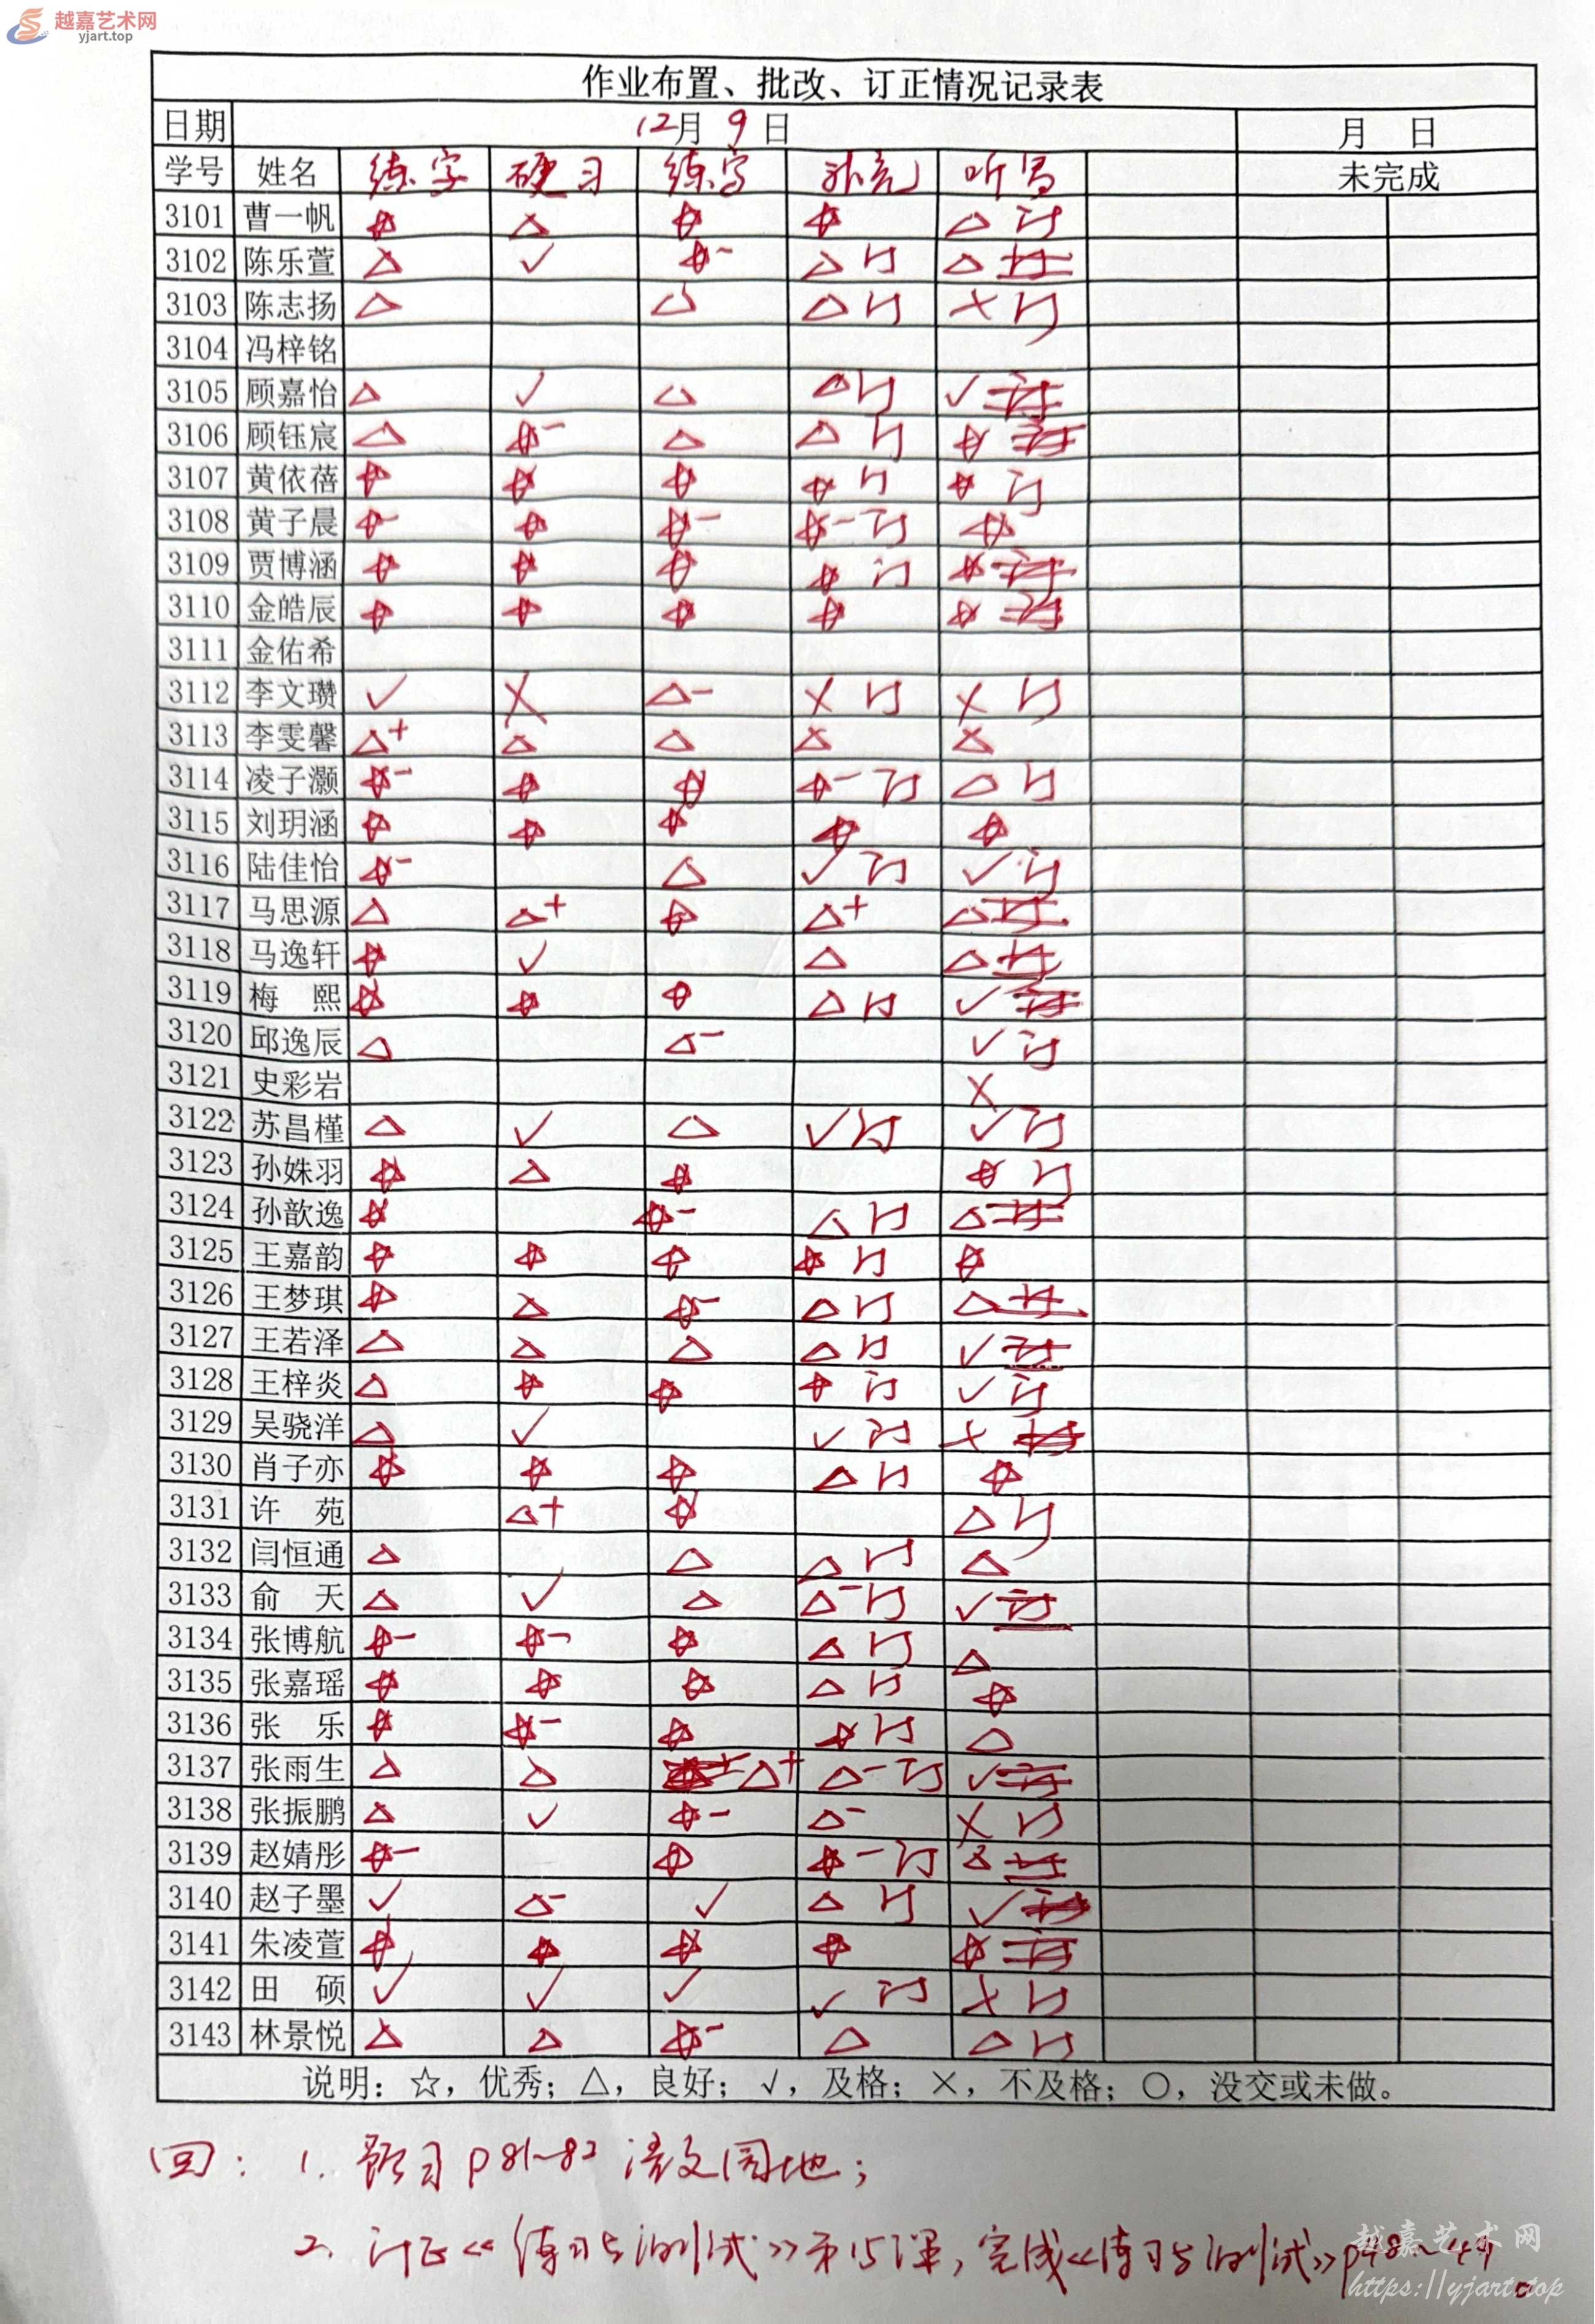 越嘉艺术网
yjart.top
作业布置、批改、订正情况记录表
日期 12月 9 日 月 日
学号 姓名 练字 硬习 练写 补充 听写 未完成
3101 曹一帆 ☆ △ ☆ ☆ △ 订
3102 陈乐萱 △ √ ☆- △ 订 △ 订
3103 陈志扬 △ △ △ 订 × 订
3104 冯梓铭
3105 顾嘉怡 △ √ △ △ 订 √ 订
3106 顾钰宸 △ ☆- △ △ 订 ☆ 订
3107 黄依蓓 ☆ ☆ ☆ ☆ 订 ☆ 订
3108 黄子晨 ☆- ☆ ☆- ☆- 订 ☆
3109 贾博涵 ☆ ☆ ☆ ☆ 订 ☆ 订
3110 金皓辰 ☆ ☆ ☆ ☆ ☆ 订
3111 金佑希
3112 李文瓒 √ × △- × 订 × 订
3113 李雯馨 △+ △ △ △ △
3114 凌子灏 ☆- ☆ ☆ ☆- 订 △ 订
3115 刘玥涵 ☆ ☆ ☆ ☆ ☆
3116 陆佳怡 ☆- △ √ 订 √ 订
3117 马思源 △ △+ ☆ △+ △ 订
3118 马逸轩 ☆ √ △ △ 订
3119 梅 熙 ☆ ☆ ☆ △ 订 √ 订
3120 邱逸辰 △ △- √ 订
3121 史彩岩 ×
3122 苏昌槿 △ √ △ √ 订 √ 订
3123 孙姝羽 ☆ △ ☆ ☆ 订
3124 孙歆逸 ☆ ☆- △ 订 △ 订
3125 王嘉韵 ☆ ☆ ☆ ☆ 订 ☆
3126 王梦琪 ☆ △ ☆- △ 订 △ 订
3127 王若泽 △ △ △ △ 订 √ 订
3128 王梓炎 △ ☆ ☆ ☆ 订 √ 订
3129 吴骁洋 △ √ √ 订 × 订
3130 肖子亦 ☆ ☆ ☆ △ 订 ☆
3131 许 苑 △+ ☆ △ 订
3132 闫恒通 △ △ △ 订 △
3133 俞 天 △ √ △ △- 订 √ 订
3134 张博航 ☆- ☆- ☆ △ 订 △
3135 张嘉瑶 ☆ ☆ ☆ △ 订 ☆
3136 张 乐 ☆ ☆- ☆ ☆ 订 △
3137 张雨生 △ △ △+ △- 订 √ 订
3138 张振鹏 △ √ ☆- △- × 订
3139 赵婧彤 ☆- ☆ ☆- 订 订
3140 赵子墨 √ △- √ △ 订 √ 订
3141 朱凌萱 ☆ ☆ ☆ ☆ ☆ 订
3142 田 硕 √ √ √ √ 订 × 订
3143 林景悦 △ △ ☆- △ △ 订
说明：☆，优秀；△，良好；√，及格；×，不及格；○，没交或未做。
回：1. 预习P81~82 语文园地；
2. 订正《练习与测试》第15课，完成《练习与测试》P48~49。
越嘉艺术网
https://yjart.top